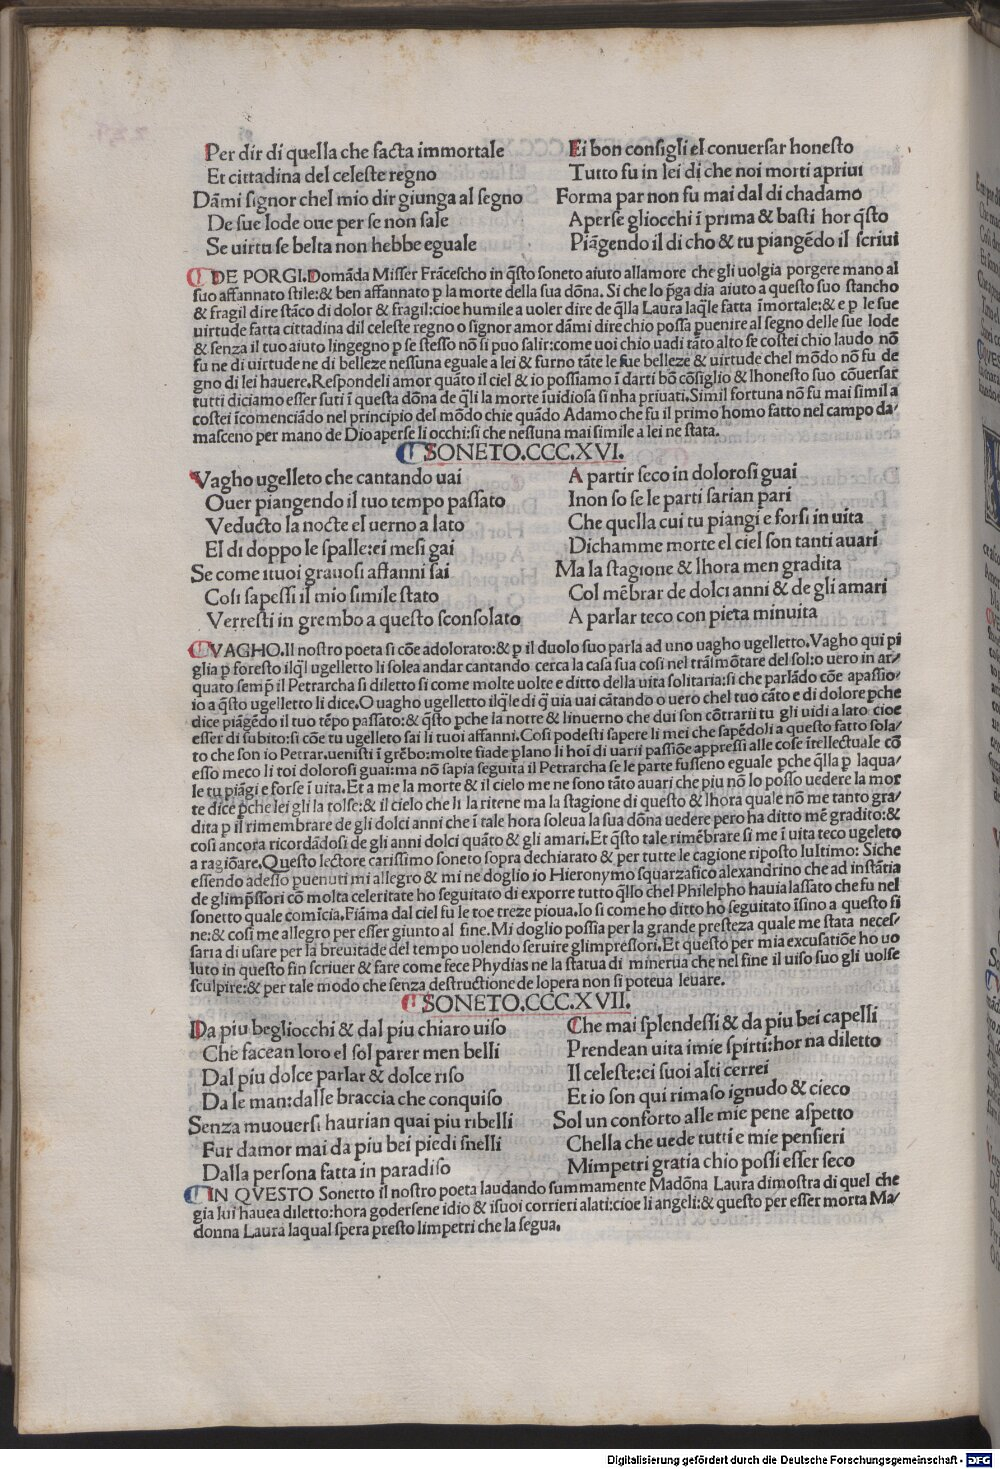 Per dir di quella che facta immortale
Et cittadina del celeste regno
Dāmi signor chel mio dir giunga al segno
De sue lode oue per se non sale
Se uirtu se belta non hebbe eguale
Ei bon consigli el conuersar honesto
Tutto fu in lei di che noi morti apriui
Forma par non fu mai dal di chadamo
Aperse gliocchi ī prima & basti hor q̄sto
Piāgendo il di cho & tu piangēdo il scriui
DE PORGI. Domāda Misser Frācescho in q̄sto soneto aiuto allamore che gli uolgia porgere mano al
suo affannato stile:& ben affannato p la morte della sua dōna. Si che lo p̄ga dia aiuto a questo suo stancho
& fragil dire stāco di dolor & fragil:cioe humile a uoler dire de q̄lla Laura laq̄le fatta īmortale:& e p le sue
uirtude fatta cittadina dil celeste regno o signor amor dāmi dire chio possa puenire al segno delle sue lode
& senza il tuo aiuto lingegno p se stesso nō si puo salir:come uoi chio uadi tāto alto se costei chio laudo nō
fu ne di uirtude ne di belleze nessuna eguale a lei & furno tāte le sue belleze & uirtude chel mōdo nō fu de
gno di lei hauere.Respondeli amor quāto il ciel & io possiamo ī darti bō cōsiglio & lhonesto suo cōuersar
tutti diciamo esser futi ī questa dōna de q̄li la morte īuidiosa si nha priuati.Simil fortuna nō fu mai simil a
costei īcomenciādo nel principio del mōdo chie quādo Adamo che fu il primo homo fatto nel campo da/
masceno per mano de Dio aperse li occhi:si che nessuna mai simile a lei ne stata.
SONETO.CCC.XVI.
Vagho ugelleto che cantando uai
Ouer piangendo il tuo tempo passato
Veducto la nocte el uerno a lato
El di doppo le spalle:ei mesi gai
Se come ituoi grauosi affanni sai
Cosi sapessi il mio simile stato
Verresti in grembo a questo sconsolato
A partir seco in dolorosi guai
Inon so se le parti sarian pari
Che quella cui tu piangi e forsi in uita
Dichamme morte el ciel son tanti auari
Ma la stagione & lhora men gradita
Col mēbrar de dolci anni & de gli amari
A parlar teco con pieta minuita
VAGHO.Il nostro poeta si cōe adolorato:& p il duolo suo parla ad uno uagho ugelletto.Vagho qui pi
glia p foresto ilq̄l ugelletto li solea andar cantando cerca la casa sua cosi nel trāmōtare del sol:o uero in ar/
quato semp̄ il Petrarcha si diletto si come molte uolte e ditto della uita solitaria:si che parlādo cōe apassio/
io a q̄sto ugelletto li dice.O uagho ugelletto ilq̄le di q̄ uia uai cātando o uero chel tuo cāto e di dolore pche
dice piāgēdo il tuo tēpo passato:& q̄sto pche la notte & linuerno che dui son cōtrarii tu gli uidi a lato cioe
esser di subito:si cōe tu ugelleto sai li tuoi affanni.Cosi podesti sapere li mei che sapēdoli a questo fatto sola/
to che son io Petrar.uenisti ī grēbo:molte fiade plano li hoi di uarii passiōe appressi alle cose ītellectuale cō
esso meco li toi dolorosi guai:ma nō sapia seguita il Petrarcha se le parte fusseno eguale pche q̄lla p laqua/
le tu piāgi e forse ī uita.Et a me la morte & il cielo me ne sono tāto auari che piu nō lo posso uedere la mor
te dice pche lei gli la tolse:& il cielo che li la ritene ma la stagione di questo & lhora quale nō me tanto gra/
dita p il rimembrare de gli dolci anni che ī tale hora soleua la sua dōna uedere pero ha ditto mē gradito:&
cosi ancora ricordādosi de gli anni dolci quāto & gli amari.Et q̄sto tale rimēbrare si me ī uita teco ugeleto
a ragiōare.Questo lectore carissimo soneto sopra dechiarato & per tutte le cagione riposto lultimo: Siche
essendo adesso puenuti mi allegro & mi ne doglio io Hieronymo squarzafico alexandrino che ad instātia
de glimp̄ssori cō molta celeritate ho seguitato di exporre tutto q̄llo chel Philelpho hauia lassato che fu nel
sonetto quale comīcia.Fiāma dal ciel su le toe treze pioua.Io si come ho ditto ho seguitato īsino a questo fi
ne:& cosi me allegro per esser giunto al fine.Mi doglio possia per la grande presteza quale me stata neces/
saria di usare per la breuitade del tempo uolendo seruire glimpressori.Et questo per mia excusatiōe ho uo
luto in questo fin scriuer & fare come fece Phydias ne la statua di minerua che nel fine il uiso suo gli uolse
sculpire:& per tale modo che senza destructione de lopera non si poteua leuare.
SONETO.CCC.XVII.
Da piu begliocchi & dal piu chiaro uiso
Che facean loro el sol parer men belli
Dal piu dolce parlar & dolce riso
Da le man:dalle braccia che conquiso
Senza muouersi haurian quai piu ribelli
Fur damor mai da piu bei piedi snelli
Dalla persona fatta in paradiso
Che mai splendessi & da piu bei capelli
Prendean uita imie spirti:hor na diletto
Il celeste:ei suoi alti cerrei
Et io son qui rimaso ignudo & cieco
Sol un conforto alle mie pene aspetto
Chella che uede tutti e mie pensieri
Mimpetri gratia chio possi esser seco
IN QVESTO Sonetto il nostro poeta laudando summamente Madōna Laura dimostra di quel che
gia lui hauea diletto:hora godersene idio & isuoi corrieri alati:cioe li angeli:& questo per esser morta Ma/
donna Laura laqual spera presto limpetri che la segua.
Digitalisierung gefördert durch die Deutsche Forschungsgemeinschaft - DFG